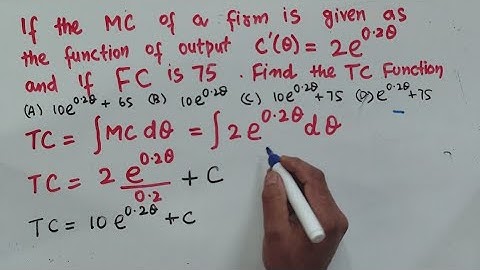 If the MC of a firm is given as
the function of output C'(θ) = 2e^0.2θ
and if FC is 75. Find the TC Function
(A) 10e^0.2θ + 65 (B) 10e^0.2θ (C) 10e^0.2θ + 75 (D) e^0.2θ + 75
TC = ∫MC dθ = ∫2e^0.2θ dθ
TC = 2 e^0.2θ / 0.2 + C
TC = 10 e^0.2θ + C